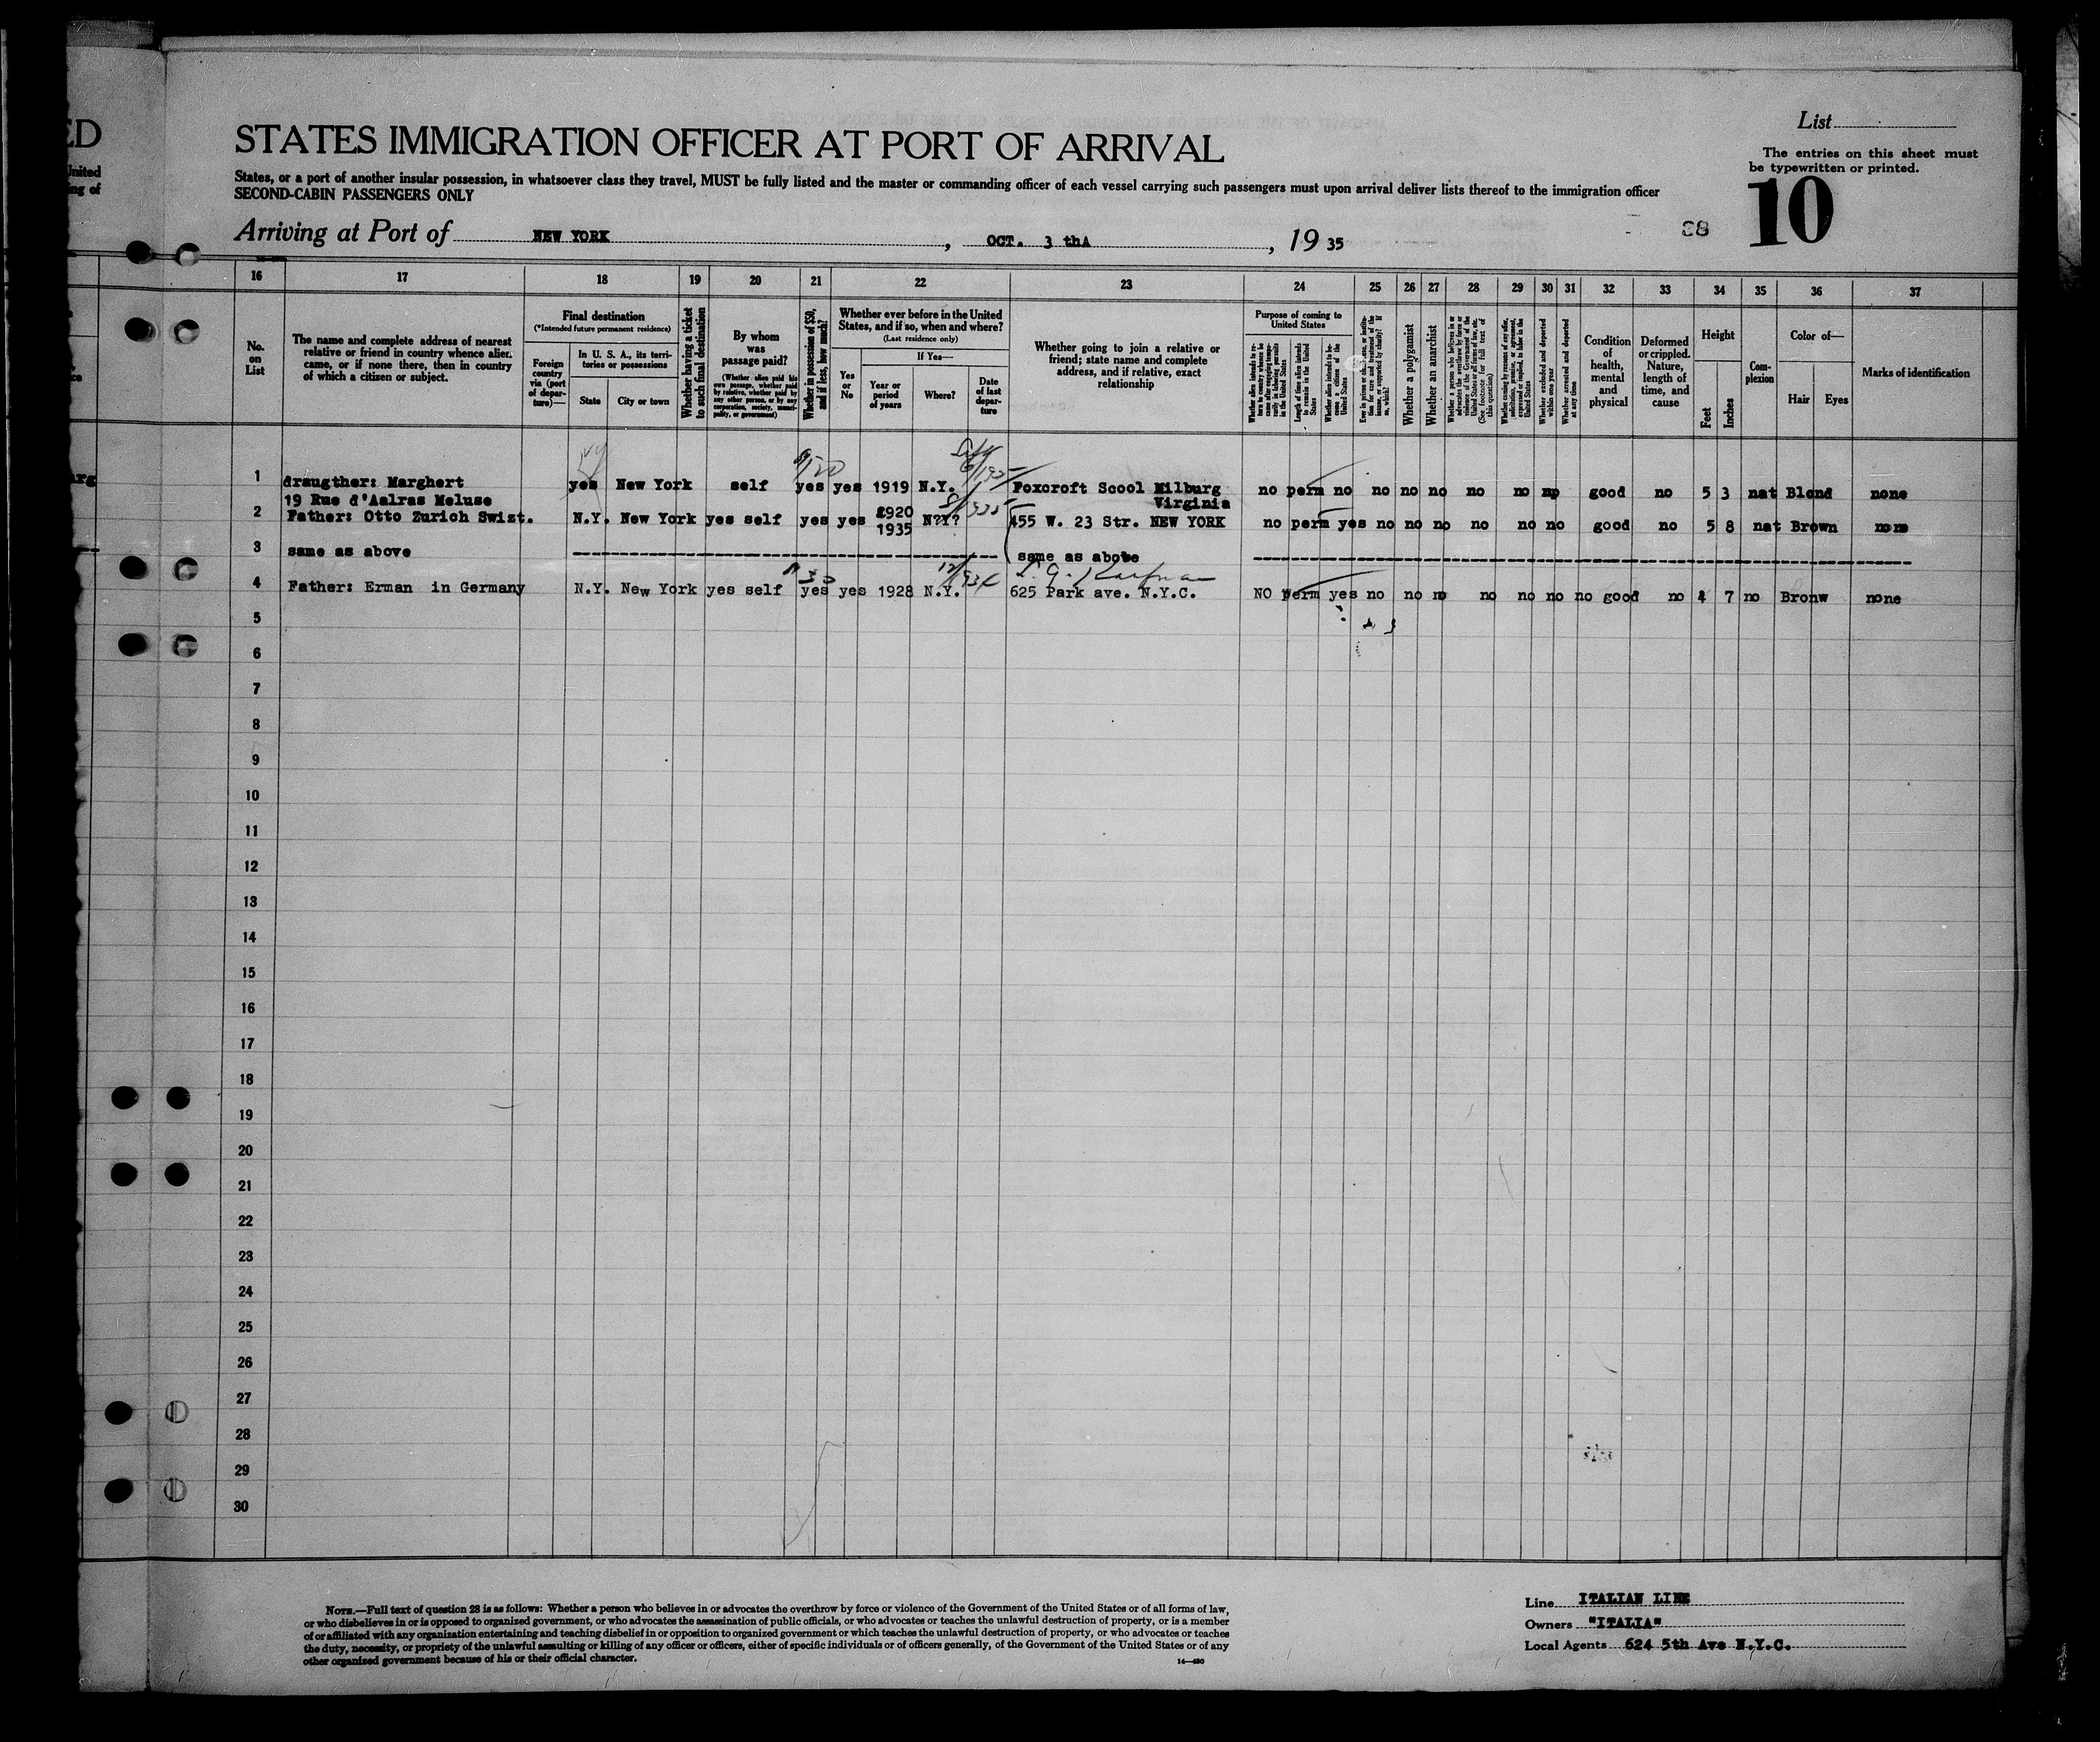 ED
List
STATES IMMIGRATION OFFICER AT PORT OF ARRIVAL
The entries on this sheet must
be typewritten or printed.
United
ing of
States, or a port of another insular possession, in whatsoever class they travel, MUST be fully listed and the master or commanding officer of each vessel carrying such passengers must upon arrival deliver lists thereof to the immigration officer
SECOND-CABIN PASSENGERS ONLY
10
Arriving at Port of NEW YORK, OCT. 3 thA, 19 35
38
16 17 18 19 20 21 22 23 24 25 26 27 28 29 30 31 32 33 34 35 36 37
No. on List
The name and complete address of nearest relative or friend in country whence alien came, or if none there, then in country of which a citizen or subject.
Final destination
(*Intended future permanent residence)
Foreign country via (port of departure)—
In U. S. A., its territories or possessions
State
City or town
Whether having a ticket to such final destination
By whom was passage paid?
(Whether alien paid his own passage, whether paid by relative, whether paid by any other person, or by any corporation, society, municipality, or government)
Whether in possession of $50, and if less, how much?
Whether ever before in the United States, and if so, when and where?
(Last residence only)
Yes or No
If Yes—
Year or period of years
Where?
Date of last departure
Whether going to join a relative or friend; state name and complete address, and if relative, exact relationship
Purpose of coming to United States
Length of time alien intends to remain in the United States
Whether alien intends to become a citizen of the United States
Whether a polygamist
Whether an anarchist
(See footnote for full text of this question)
Whether excluded and deported within one year
Whether arrested and deported at any time
Condition of health, mental and physical
Deformed or crippled. Nature, length of time, and cause
Height
Feet
Inches
Complexion
Color of—
Hair
Eyes
Marks of identification
arg
1 draugther: Marghert yes New York self yes yes 1919 N.Y. Foxcroft Scool Milburg no perm no no no no no no no good no 5 3 nat Blond none
19 Rue d'Aalras Meluse Virginia
2 Father: Otto Zurich Swizt. N.Y. New York yes self yes yes 1920 N?Y? 455 W. 23 Str. NEW YORK no perm yes no no no no no no good no 5 8 nat Brown none
1935
3 same as above same as above
4 Father: Erman in Germany N.Y. New York yes self yes yes 1928 N.Y. 625 Park ave. N.Y.C. NO perm yes no no no no no no no good no 4 7 no Bronw none
5
6
7
8
9
10
11
12
13
14
15
16
17
18
19
20
21
22
23
24
25
26
27
28
29
30
NOTE.—Full text of question 28 is as follows: Whether a person who believes in or advocates the overthrow by force or violence of the Government of the United States or of all forms of law,
or who disbelieves in or is opposed to organized government, or who advocates the assassination of public officials, or who advocates or teaches the unlawful destruction of property, or is a member
of or affiliated with any organization entertaining and teaching disbelief in or opposition to organized government or which teaches the unlawful destruction of property, or who advocates or teaches
the duty, necessity, or propriety of the unlawful assaulting or killing of any officer or officers, either of specific individuals or of officers generally, of the Government of the United States or of any
other organized government because of his or their official character.
14—480
Line ITALIAN LINE
Owners "ITALIA"
Local Agents 624 5th Ave N.Y.C.